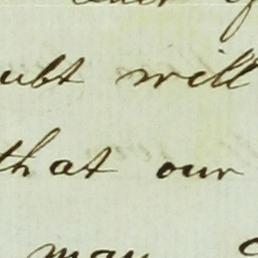 ubt will
that our
may